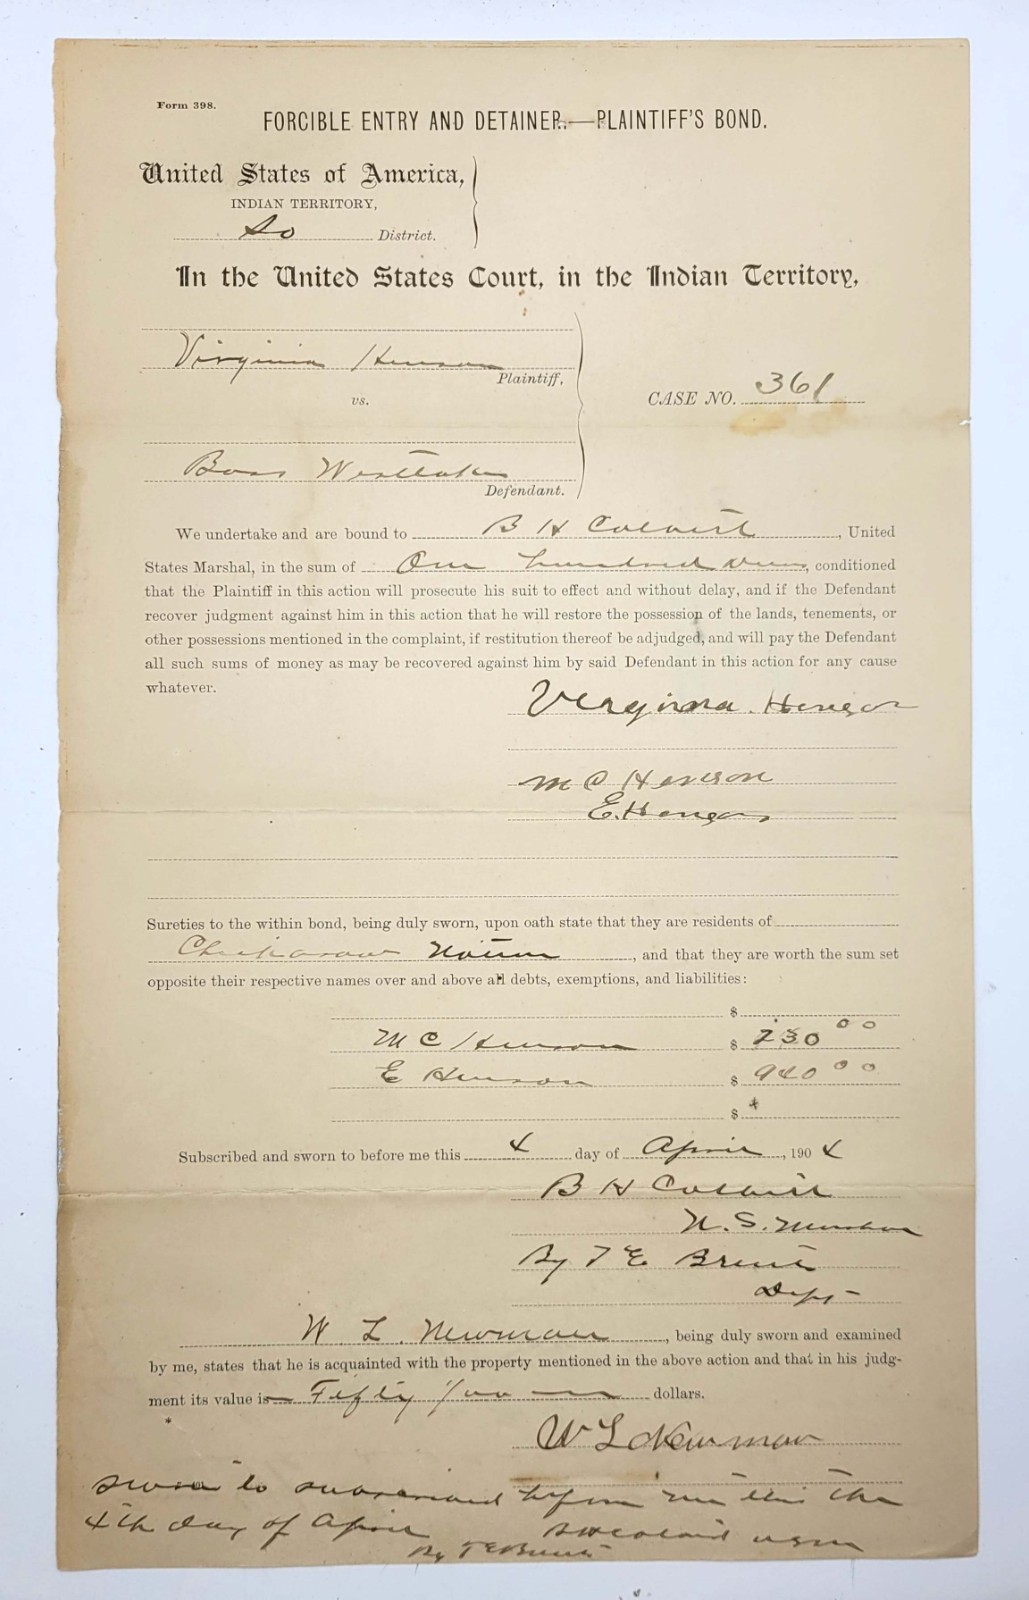 Form 398.
FORCIBLE ENTRY AND DETAINER.—PLAINTIFF'S BOND.
United States of America,
INDIAN TERRITORY,
So District.
In the United States Court, in the Indian Territory,
Virginia Henson
Plaintiff,
vs.
CASE NO. 361
Boss Westlake
Defendant.
We undertake and are bound to B H Colbert, United
States Marshal, in the sum of One hundred, conditioned
that the Plaintiff in this action will prosecute his suit to effect and without delay, and if the Defendant
recover judgment against him in this action that he will restore the possession of the lands, tenements, or
other possessions mentioned in the complaint, if restitution thereof be adjudged, and will pay the Defendant
all such sums of money as may be recovered against him by said Defendant in this action for any cause
whatever.
Virginia Henson
M C Henson
E. Henson
Sureties to the within bond, being duly sworn, upon oath state that they are residents of
Chickasaw Nation, and that they are worth the sum set
opposite their respective names over and above all debts, exemptions, and liabilities:
$
M C Henson $ 730 00
E Henson $ 940 00
$
Subscribed and sworn to before me this 4 day of April, 1904
B H Colbert
U. S. Marshal
By T E Brents
Dept
W L Newman, being duly sworn and examined
by me, states that he is acquainted with the property mentioned in the above action and that in his judg-
ment its value is Fifty /00 dollars.
W L Newman
sworn to subscribed before me this the
4th day of April B H Colbert USM
By T E Brents